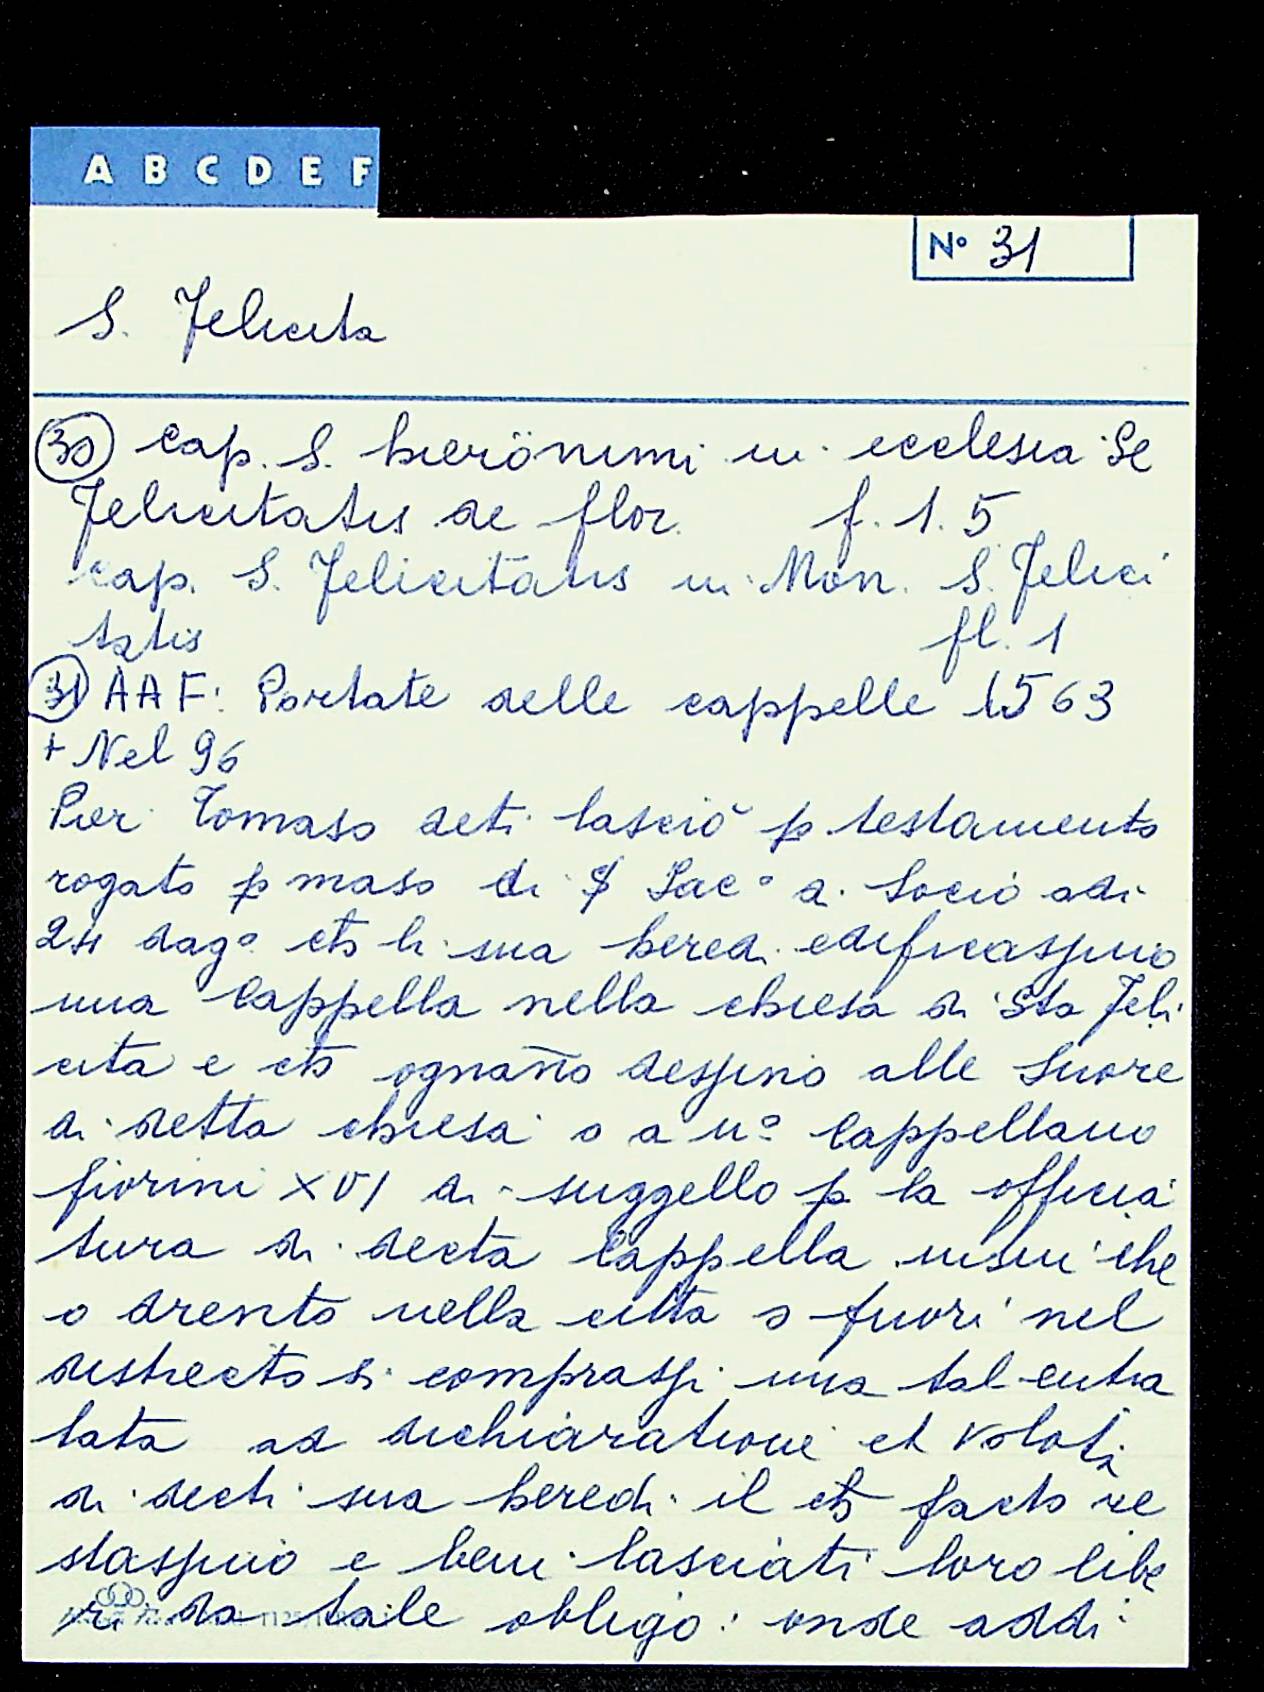 A B C D E F
Nº 31
S. Felicita
30 cap. S. hierönimi in ecclesia Se
Felicitatis de flor. f. 1. 5
cap. S. Felicitatis in Mon. S. Felici
tatis fl. 1
31 AAF: Portate delle cappelle 1563
+ Nel 96
Pier Tomaso deti lasciò p testamento
rogato p maso di Jacº a. Socio adi
24 dagº ch li sua heredi edificassino
una Cappella nella chiesa di Sta Feli
cita e ch ognaño dessino alle Suore
di detta chiesa o a uº Cappellano
fiorini XVI di suggello p la officia
tura di decta Cappella insin che
o drento nella citta o fuori nel
destrecto si comprassi una tal entra
tata ad dichiaratione et volotà
di decti sua heredi il ch facto re
stassino e beni lasciati loro libe
ri da tale obligo: onde addi